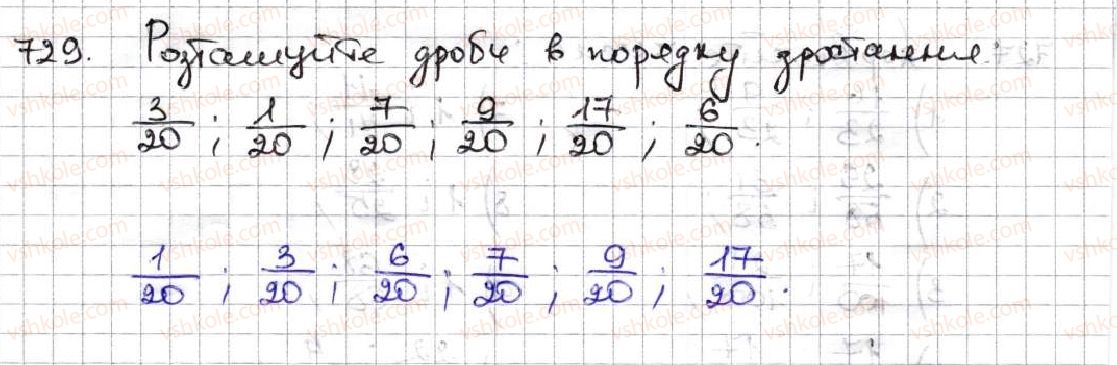 729. Розташуйте дроби в порядку зростання:
3/20 ; 1/20 ; 7/20 ; 9/20 ; 17/20 ; 6/20.
1/20 ; 3/20 ; 6/20 ; 7/20 ; 9/20 ; 17/20.
vshkole.com